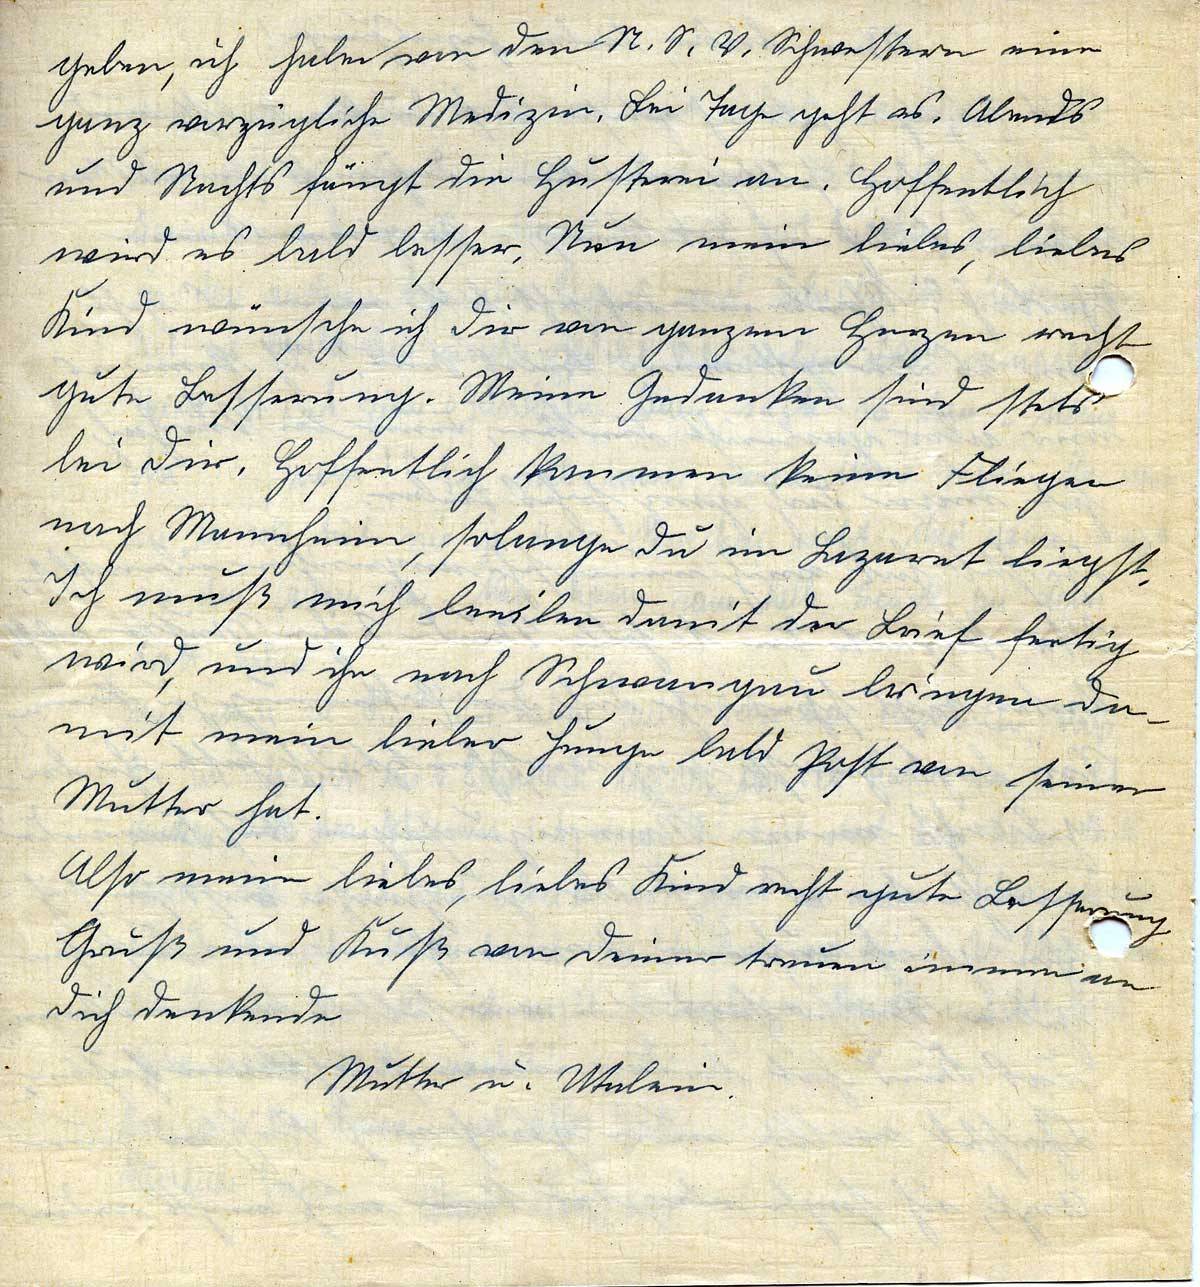 geben, ich habe von den N. S. V. Schwestern eine
ganz vorzügliche Medizin. Bei Tage geht es. Abends
und Nachts fängt die Husterei an. Hoffentlich
wird es bald besser. Nun mein liebes, liebes
Kind wünsche ich Dir von ganzem Herzen recht
gute Besserung. Meine Gedanken sind stets
bei Dir. Hoffentlich kommen keine Flieger
nach Mannheim, solange du im Lazaret liegst.
Ich muß mich beeilen damit der Brief fertig
wird, und ihn nach Schwangau bringen da-
mit mein lieber Junge bald Post von seiner
Mutter hat.
Also mein liebes, liebes Kind recht gute Besserung
Gruß und Kuß von Deiner treuen immer an
Dich denkende
Mutter u. Utalein.